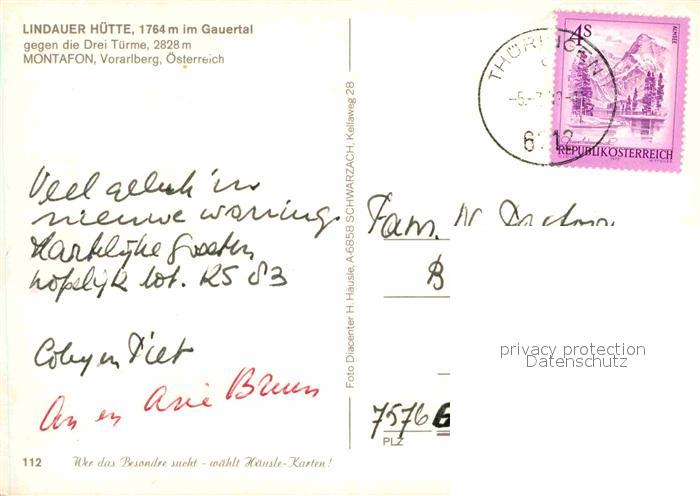 LINDAUER HÜTTE, 1764 m im Gauertal
gegen die Drei Türme, 2828 m
MONTAFON, Vorarlberg, Österreich
Veel geluk in
nieuwe woning.
Hartelijke groeten
hopelijk tot. KS 83
Coby en Piet
An en Arie
112
Wer das Besondre sucht - wählt Häusle-Karten!
Foto Diacenter H. Häusle, A-6858 SCHWARZACH, Kellaweg 28
THÜRINGEN
4S
ALMSEE
REPUBLIK ÖSTERREICH
Fam. W.
B
7576
PLZ
privacy protection
Datenschutz